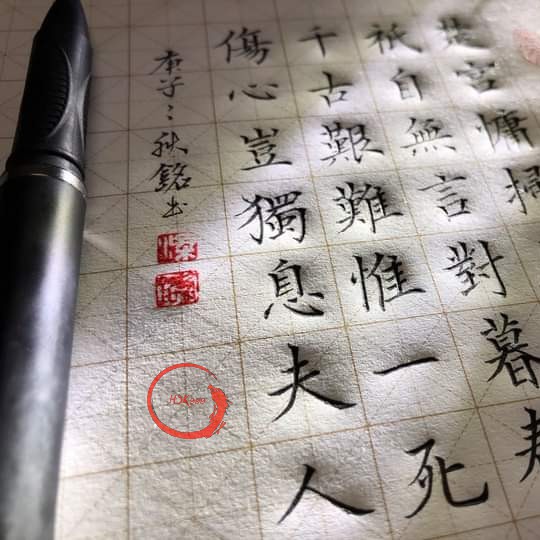 楚宮慵掃
祇自無言對暮
千古艱難惟一死
傷心豈獨息夫人
庚子〻秋銘书